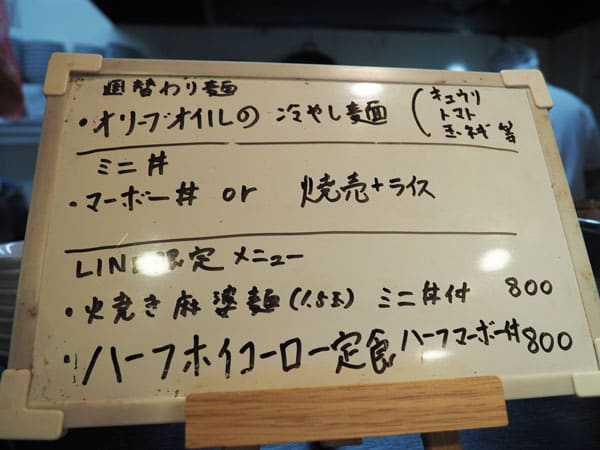 週替わり麺
・オリーブオイルの 冷やし麺 (キュウリ
トマト
玉ネギ 等
ミニ丼
・マーボー丼 or 焼売+ライス
LINE限定 メニュー
・焼き 麻婆麺(1.5玉) ミニ丼付 800
・ハーフホイコーロー定食 ハーフマーボー付 800